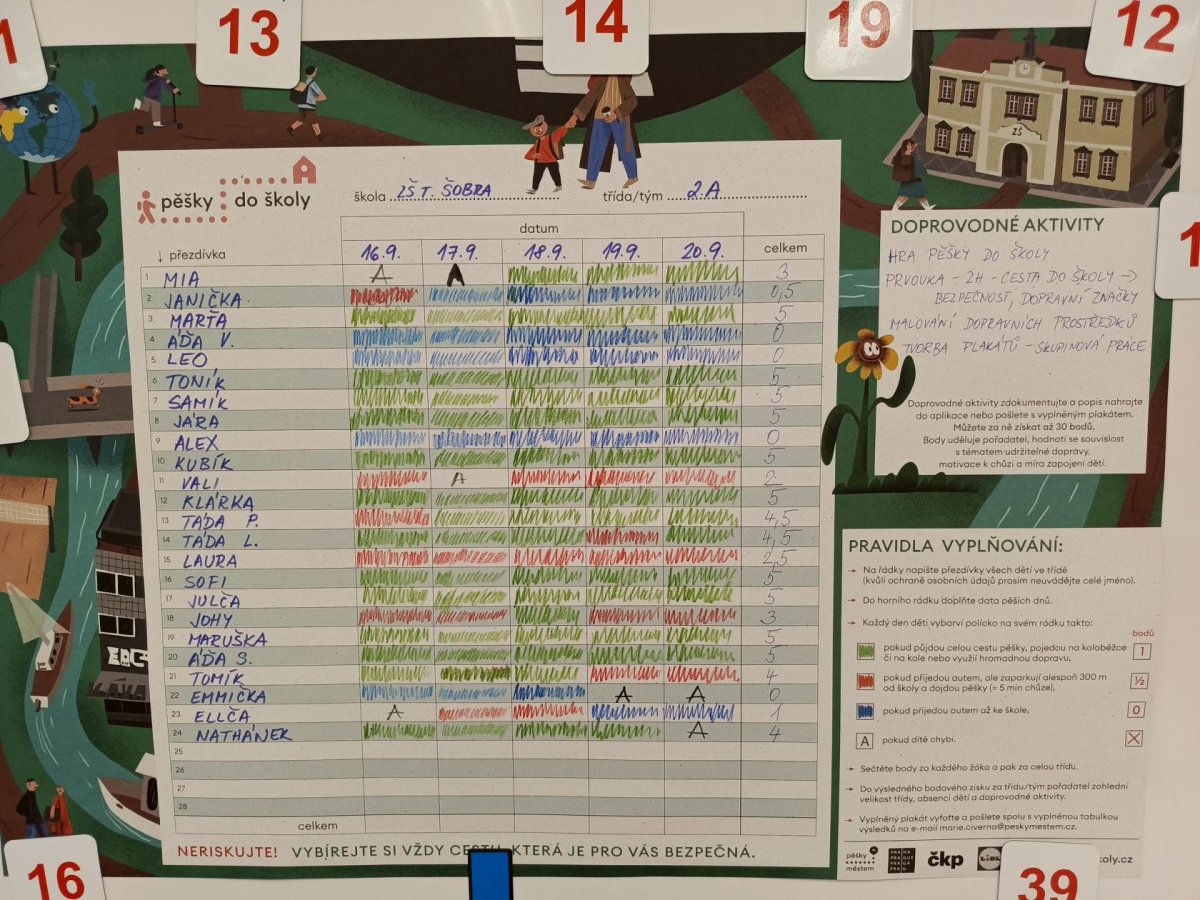 1
13
14
19
12
ZŠ
pěšky do školy
škola ZŠ T. ŠOBRA třída/tým 2.A
datum
↓ přezdívka 16.9. 17.9. 18.9. 19.9. 20.9. celkem
1 MIA A A 3
2 JANIČKA 0,5
3 MARŤA 5
4 AĎA V. 0
5 LEO 0
6 TONÍK 5
7 SAMÍK 5
8 JÁRA 5
9 ALEX 0
10 KUBÍK 5
11 VALI A 2
12 KLÁRKA 5
13 TÁĎA P. 4,5
14 TÁĎA L. 4,5
15 LAURA 2,5
16 SOFI 5
17 JULČA 5
18 JOHY 3
19 MARUŠKA 5
20 AĎA S. 5
21 TOMÍK 4
22 EMMIČKA A A 0
23 ELLČA A 1
24 NATHÁNEK A 4
25
26
27
28
celkem
NERISKUJTE! VYBÍREJTE SI VŽDY CESTU, KTERÁ JE PRO VÁS BEZPEČNÁ.
DOPROVODNÉ AKTIVITY
HRA PĚŠKY DO ŠKOLY
PRVOUKA - 2H - CESTA DO ŠKOLY →
BEZPEČNOST, DOPRAVNÍ ZNAČKY
MALOVÁNÍ DOPRAVNÍCH PROSTŘEDKŮ
TVORBA PLAKÁTŮ - SKUPINOVÁ PRÁCE
Doprovodné aktivity zdokumentujte a popis nahrajte
do aplikace nebo pošlete s vyplněným plakátem.
Můžete za ně získat až 30 bodů.
Body uděluje pořadatel, hodnotí se souvislost
s tématem udržitelné dopravy,
motivace k chůzi a míra zapojení dětí.
1
PRAVIDLA VYPLŇOVÁNÍ:
→ Na řádky napište přezdívky všech dětí ve třídě
(kvůli ochraně osobních údajů prosím neuvádějte celé jméno).
→ Do horního řádku doplňte data pěších dnů.
→ Každý den děti vybarví políčko na svém řádku takto:
bodů
pokud půjdou celou cestu pěšky, pojedou na koloběžce
či na kole nebo využijí hromadnou dopravu, 1
pokud přijedou autem, ale zaparkují alespoň 300 m
od školy a dojdou pěšky (= 5 min chůze), ½
pokud přijedou autem až ke škole, 0
A pokud dítě chybí.
→ Sečtěte body za každého žáka a pak za celou třídu.
→ Do výsledného bodového zisku za třídu/tým pořadatel zohlední
velikost třídy, absenci dětí a doprovodné aktivity.
→ Vyplněný plakát vyfoťte a pošlete spolu s vyplněnou tabulkou
výsledků na e-mail marie.civerna@peskymestem.cz.
pěšky městem PRAHA PRAGUE PRAGA PRAG čkp LIDL koly.cz
KAVÁ
16
39